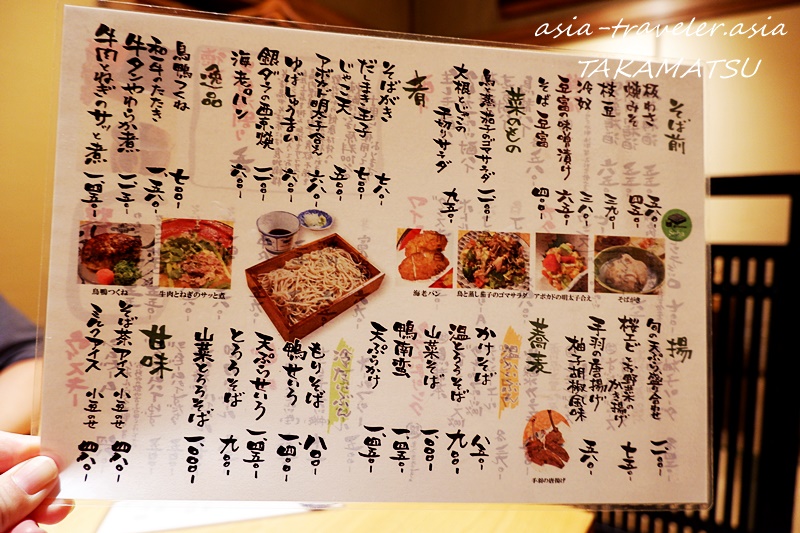 asia-traveler.asia
TAKAMATSU
そば前
板わさ 五八〇-
焼みそ 四五〇-
枝豆 三九〇-
冷奴 三八〇-
豆富の味噌漬け 六五〇-
そば豆富 四〇〇-
菜のもの
鳥と蒸し茄子のゴマサラダ
大根とじゃこの手切りサラダ 九五〇-
肴
そばがき 七八〇-
だしまき玉子 七〇〇-
じゃこ天 五〇〇-
アボカド明太子合え 六八〇-
ゆばしゅうまい 六〇〇-
銀ダラの西京焼
海老パン 六〇〇-
逸品
鳥鴨つくね 七〇〇-
牛タンやわらか煮
牛肉とねぎのサッと煮
鳥鴨つくね
牛肉とねぎのサッと煮
海老パン
鳥と蒸し茄子のゴマサラダ
アボカドの明太子合え
そばがき
揚
旬の天ぷら盛り合わせ
桜エビとお野菜のかき揚げ 七五〇-
手羽の唐揚げ
柚子胡椒風味 五八〇-
手羽の唐揚げ
蕎麦
かけそば 八五〇-
温とろろそば 九八〇-
山菜そば 一、〇〇〇-
鴨南蛮 一、四五〇-
天ぷらかけ 一、四五〇-
もりそば 八〇〇-
鴨せいろ 一、四〇〇-
天ぷらせいろ 一、四五〇-
とろろそば 九八〇-
山菜とろろそば 一、一〇〇-
甘味
そば茶アイス 小豆のせ 四八〇-
ミルクアイス 小豆のせ 四八〇-